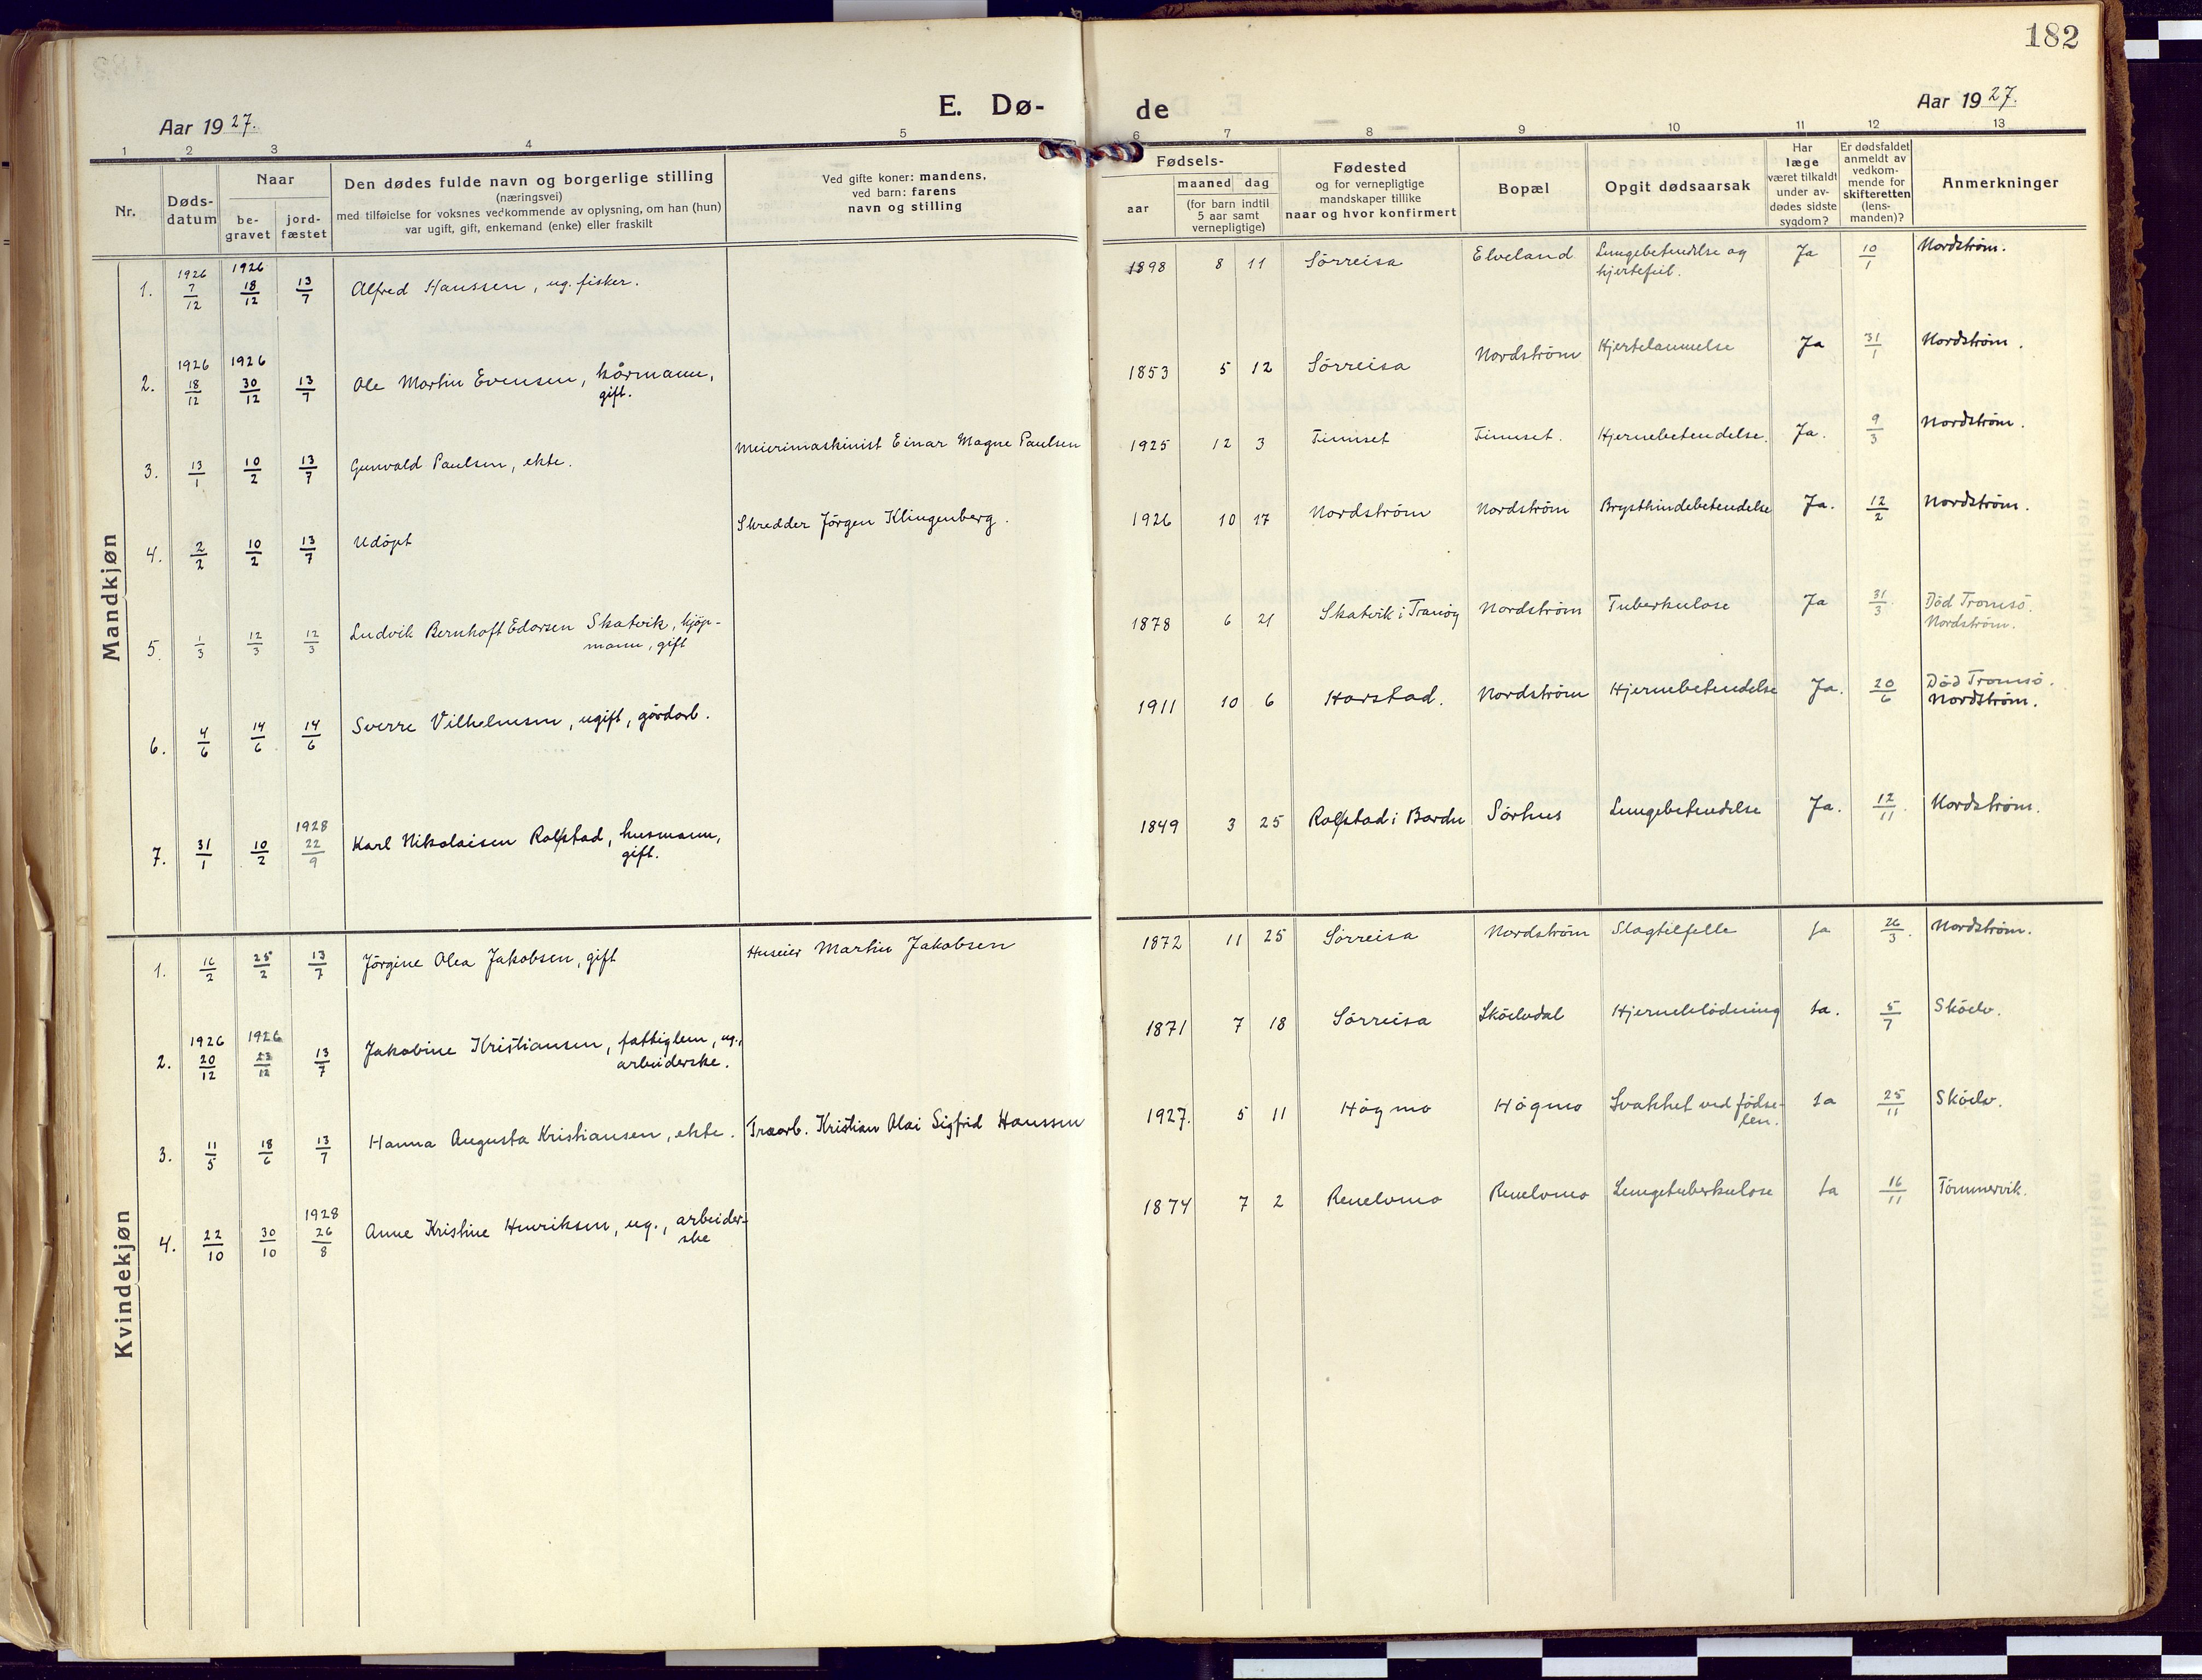 182
E. Dø-
de
Aar 1927.
Aar 1927.
1 2 3 4 5 6 7 8 9 10 11 12 13
Nr.
Døds-
datum
Naar
be-
gravet
jord-
fæstet
Den dødes fulde navn og borgerlige stilling
(næringsvei)
med tilføielse for voksnes vedkommende av oplysning, om han (hun)
var ugift, gift, enkemand (enke) eller fraskilt
Ved gifte koner: mandens,
ved barn: farens
navn og stilling
Fødsels-
aar
maaned dag
(for barn indtil
5 aar samt
vernepligtige)
Fødested
og for vernepligtige
mandskaper tillike
naar og hvor konfirmert
Bopæl
Opgit dødsaarsak
Har
læge
været tilkaldt
under av-
dødes sidste
sygdom?
Er dødsfaldet
anmeldt av
vedkom-
mende for
skifteretten
(lens-
manden)?
Anmerkninger
Mandkjøn
1. 1926 7/12 1926 18/12 13/7 Alfred Hanssen, ug. fisker. 1898 8 11 Sörreisa Elveland Lungebetendelse og
hjertefeil. Ja 10/1 Nordström.
2. 1926 18/12 1926 30/12 13/7 Ole Martin Evensen, kårmann,
gift. 1853 5 12 Sörreisa Nordström Hjertelammelse Ja 31/1 Nordström.
3. 13/1 10/2 13/7 Gunvald Paulsen, ekte. Meierimaskinist Einar Magne Paulsen 1925 12 3 Finnset Finnset. Hjernebetendelse. Ja. 9/3 Nordström.
4. 2/2 10/2 13/7 Udöpt Skredder Jörgen Klingenberg. 1926 10 17 Nordström Nordström Brysthindebetendelse Ja. 12/2 Nordström.
5. 1/3 12/3 12/3 Ludvik Bernhoft Edorsen Skatvik, kjöp-
mann, gift 1878 6 21 Skatvik i Tranöy Nordström Tuberkulose Ja 31/3 Död Tromsö.
Nordström.
6. 4/6 14/6 14/6 Sverre Vilhelmsen, ugift, gårdarb. 1911 10 6 Harstad. Nordström Hjernebetendelse Ja. 20/6 Död Tromsö.
Nordström.
7. 31/1 10/2 1928 22/9 Karl Nikolaisen Rolfstad, husmann,
gift. 1849 3 25 Rolfstad i Bardu Sörhus Lungebetendelse Ja. 12/11 Nordström.
Kvindekjøn
1. 16/2 25/2 13/7 Jörgine Olea Jakobsen, gift Huseier Martin Jakobsen 1872 11 25 Sörreisa Nordström Slagtilfelle Ja 26/3. Nordström.
2. 1926 20/12 1926 23/12 13/7 Jakobine Kristiansen, fattiglem, ug.,
arbeiderske. 1871 7 18 Sörreisa Sköelvdal Hjerneblödning Ja. 5/7 Sköelv.
3. 11/5 18/6 13/7 Hanna Augusta Kristiansen, ekte. Traarb. Kristian Olai Sigfrid Hanssen 1927. 5 11 Högmo Högmo Svakhet ved födse-
len. Ja 25/11 Sköelv.
4. 22/10 30/10 1928 26/8 Anne Kristine Henriksen, ug., arbeider-
ske 1874 7 2 Renelvmo Renelvmo Lungetuberkulose Ja 16/11 Tömmervik.